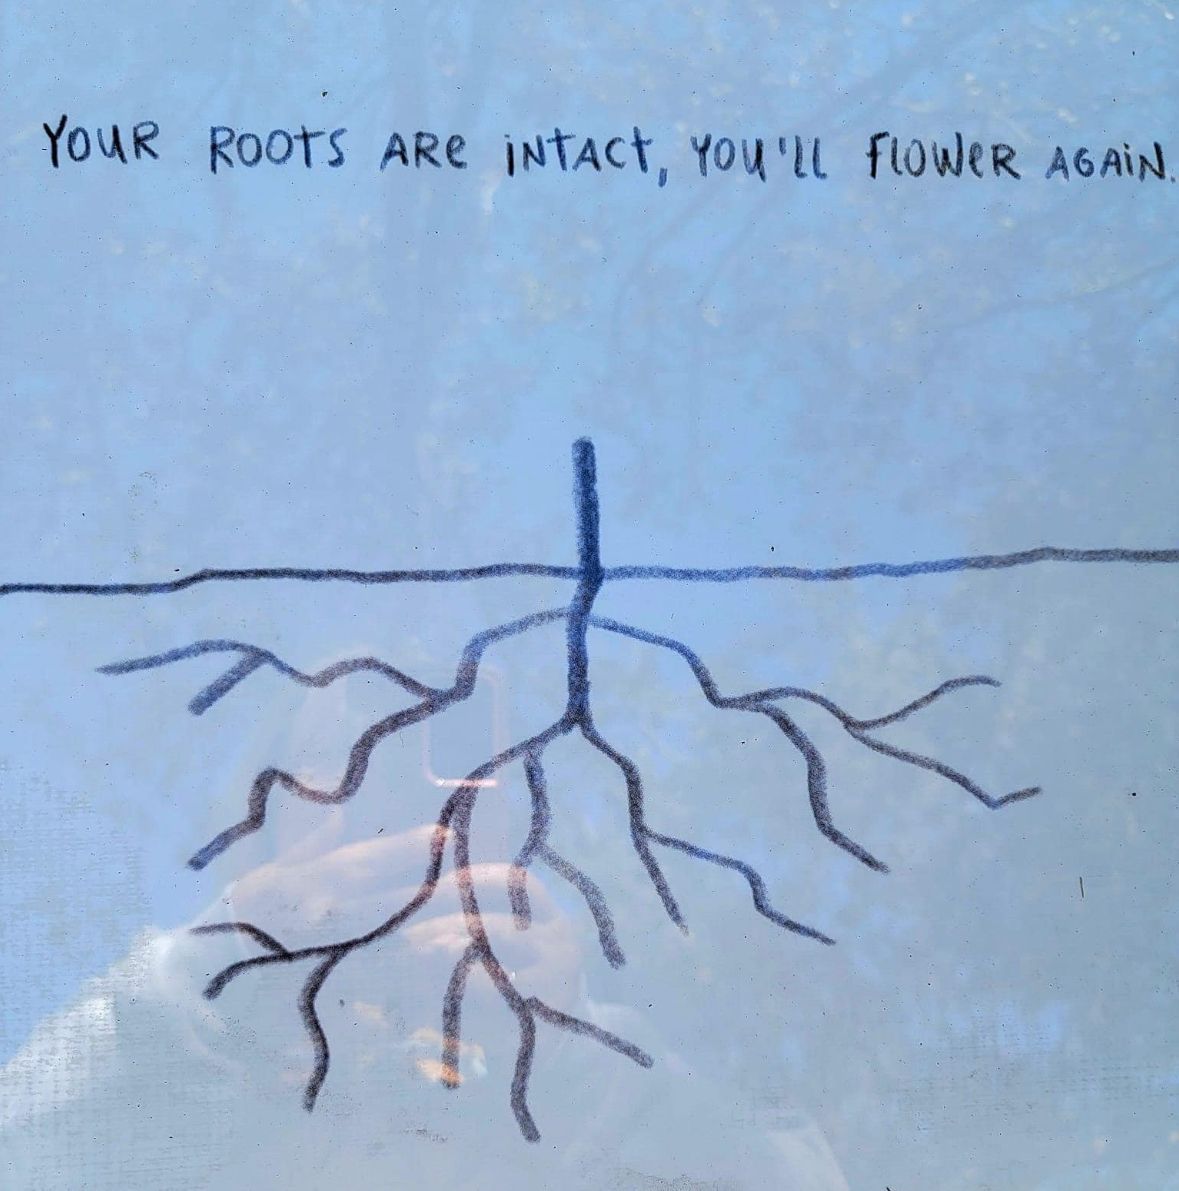 YOUR ROOTS ARE INTACT, YOU'LL FLOWER AGAIN.